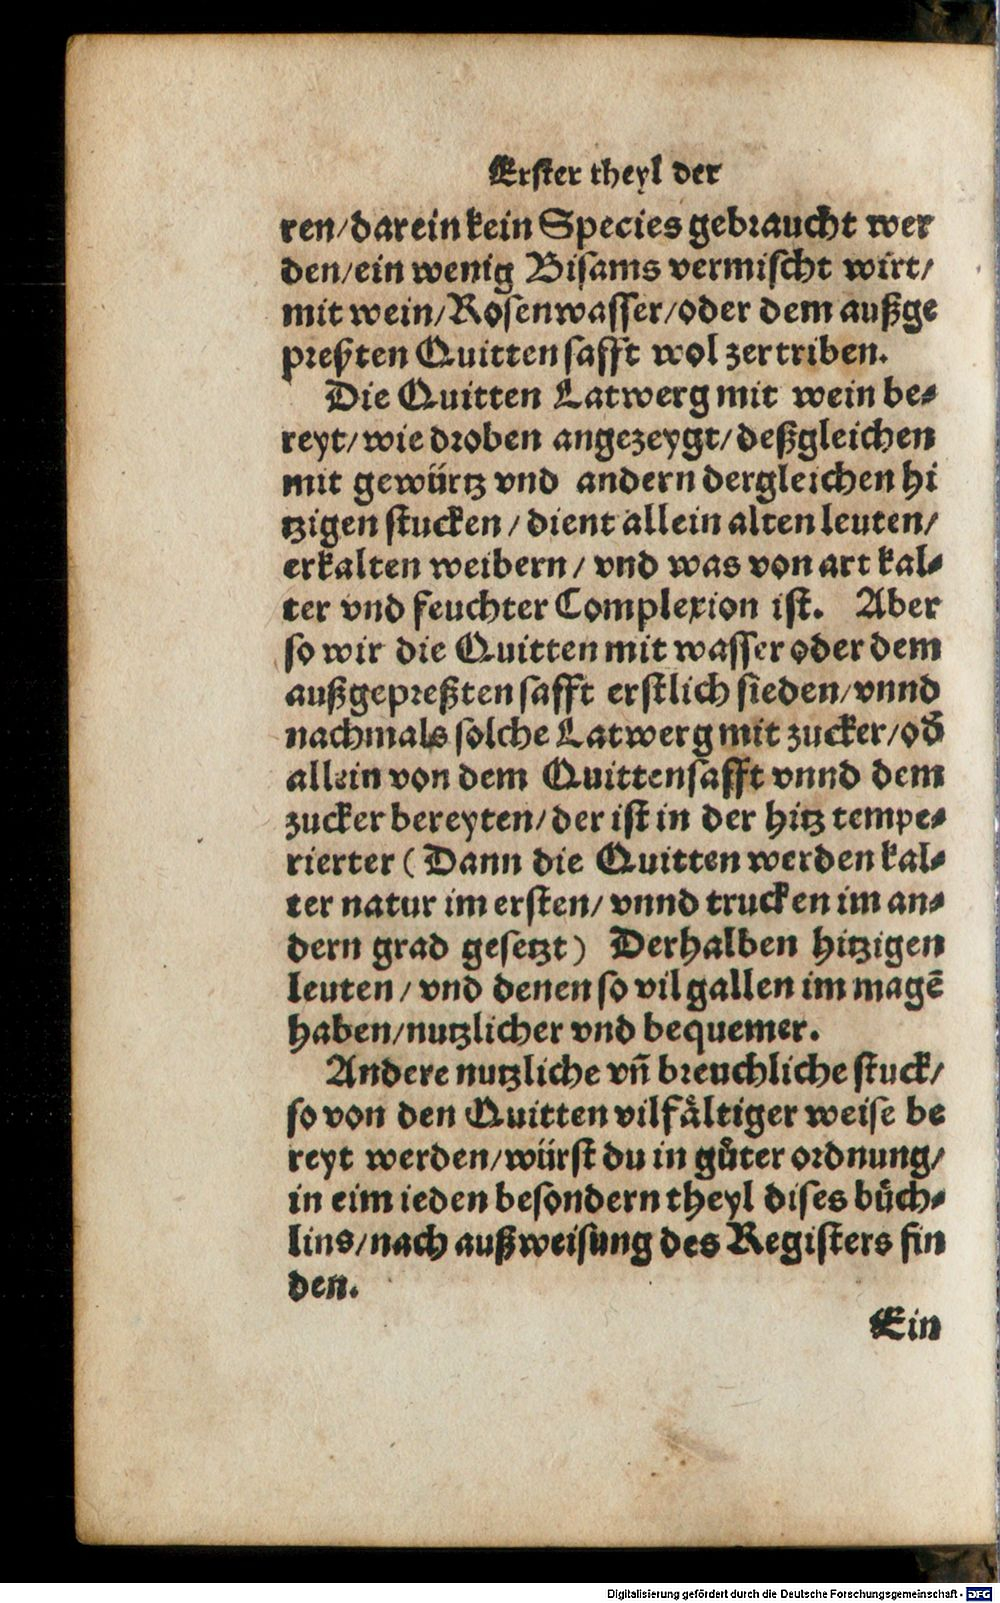 Erster theyl der
ren/darein kein Species gebraucht wer
den/ein wenig Bisams vermischt wirt/
mit wein/Rosenwasser/oder dem außge
preßten Quittensafft wol zertriben.
Die Quitten Latwerg mit wein be-
reyt/wie droben angezeygt/deßgleichen
mit gewürtz vnd andern dergleichen hi
tzigen stucken/dient allein alten leuten/
erkalten weibern/vnd was von art kal-
ter vnd feuchter Complexion ist. Aber
so wir die Quitten mit wasser oder dem
außgepreßten safft erstlich sieden/vnnd
nachmals solche Latwerg mit zucker/od̄
allein von dem Quittensafft vnnd dem
zucker bereyten/der ist in der hitz tempe-
rierter (Dann die Quitten werden kal-
ter natur im ersten/vnnd trucken im an-
dern grad gesetzt) Derhalben hitzigen
leuten/vnd denen so vil gallen im magē
haben/nutzlicher vnd bequemer.
Andere nutzliche vn̄ breuchliche stuck/
so von den Quitten vilfältiger weise be
reyt werden/würst du in gůter ordnung/
in eim ieden besondern theyl dises büch-
lins/nach außweisung des Registers fin
den.
Ein
Digitalisierung gefördert durch die Deutsche Forschungsgemeinschaft - DFG